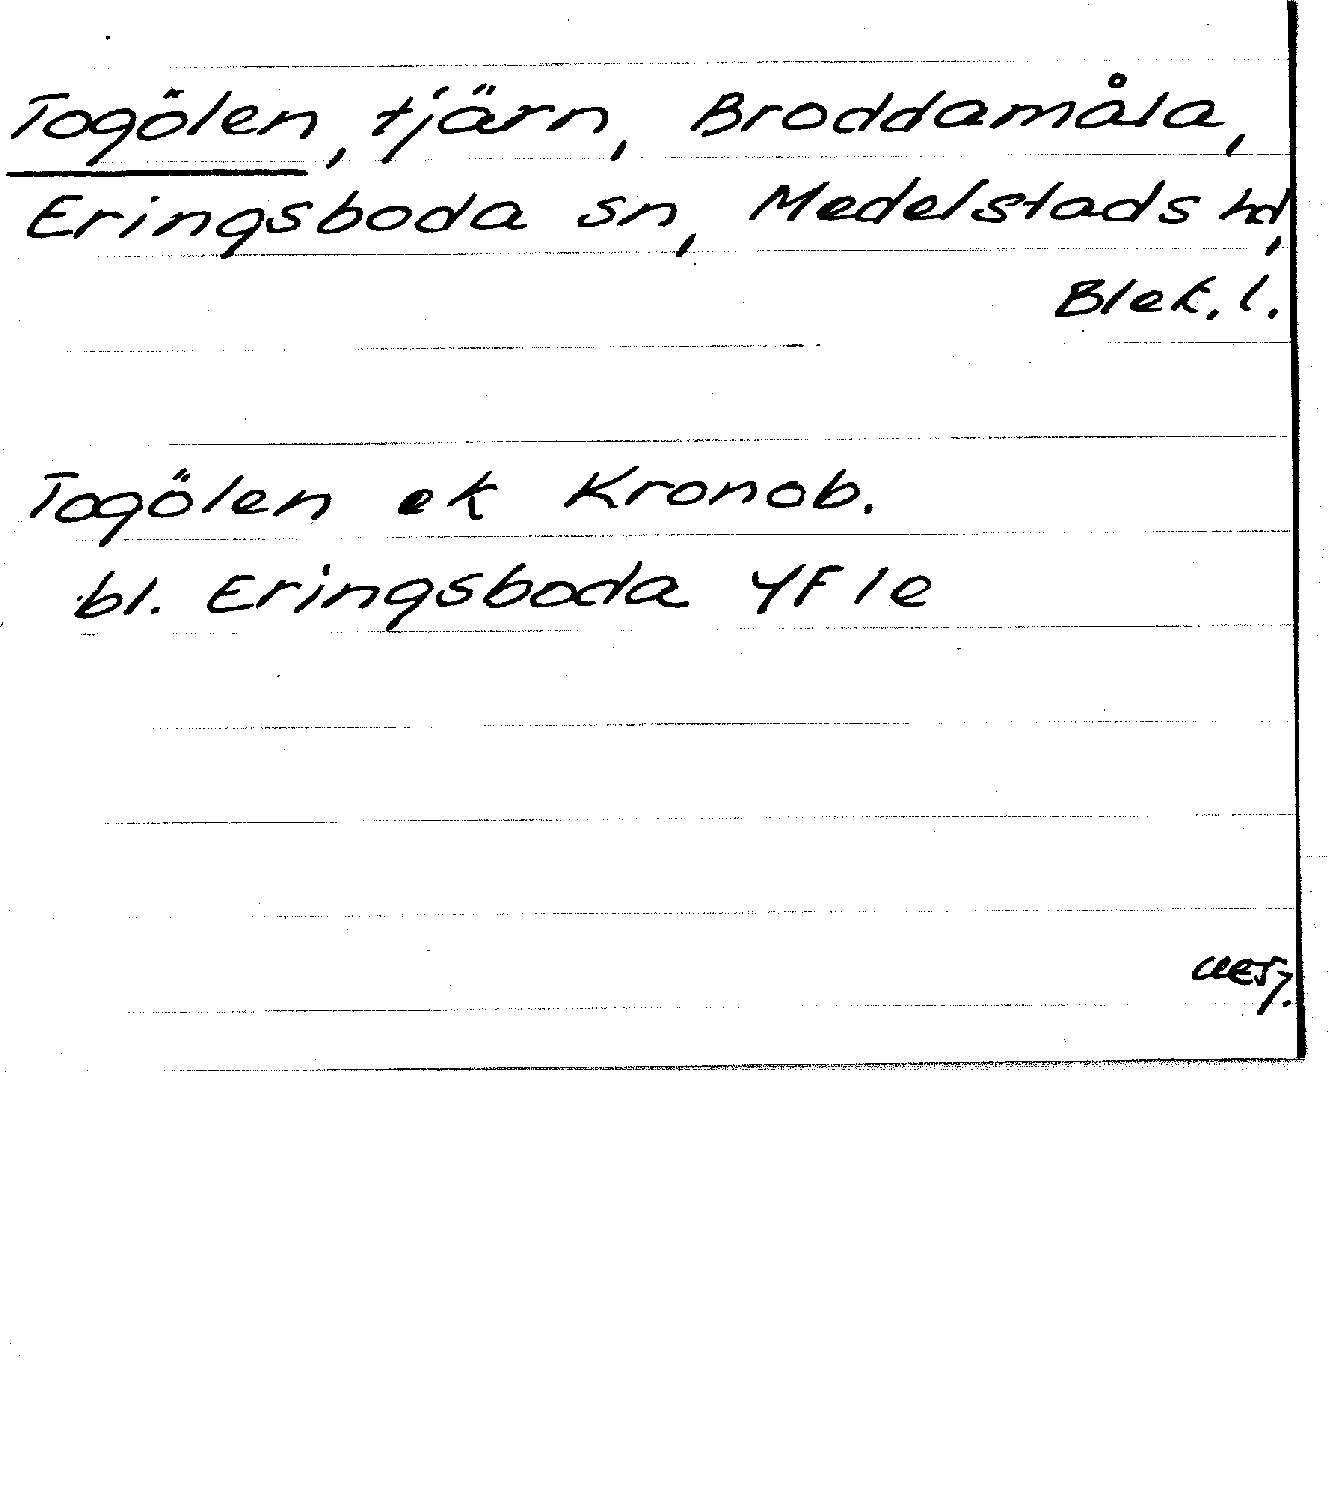 Togölen, tjärn, Broddamåla,
Eringsboda sn, Medelstads hd,
Blek. l.
Togölen ek Kronob.
bl. Eringsboda 4F 1e